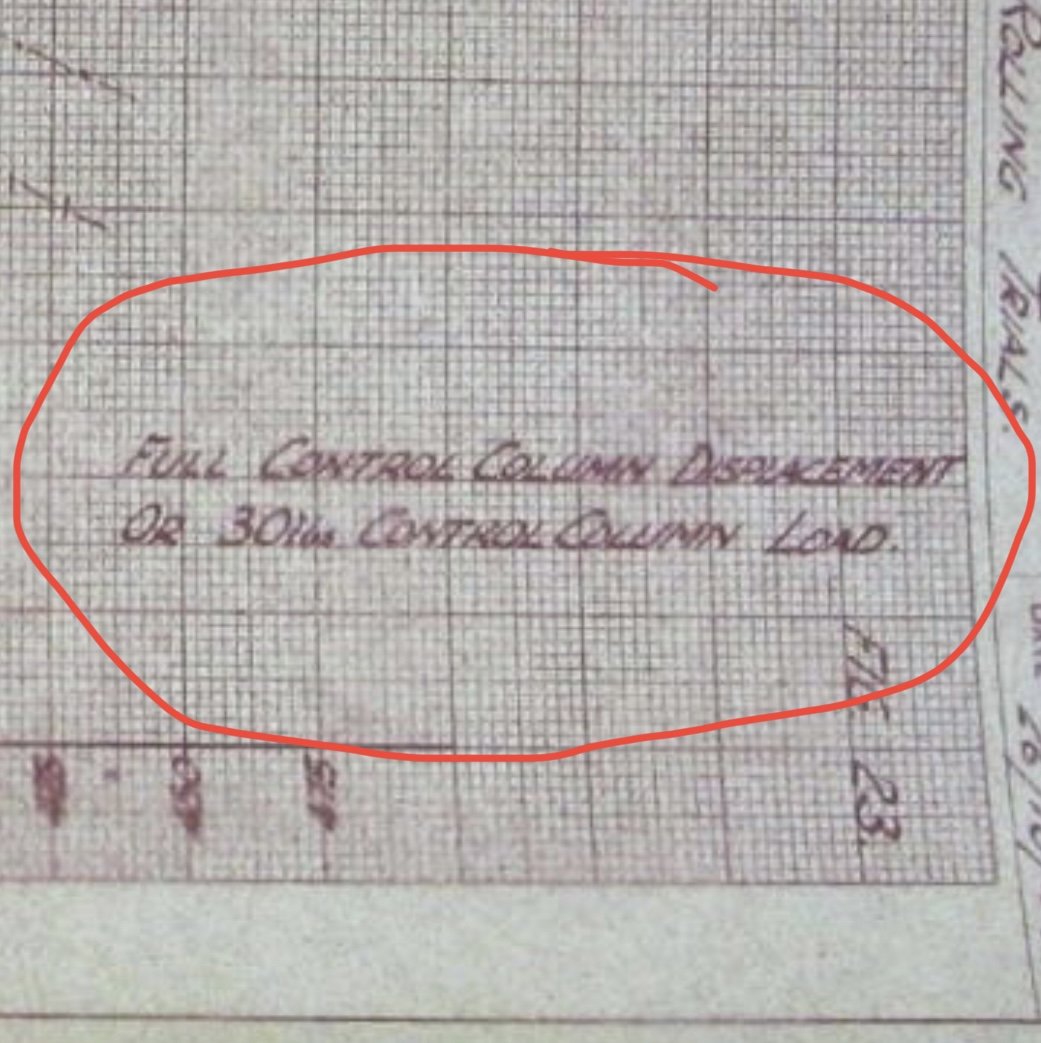 ROLLING TRIALS.
FULL CONTROL COLUMN DISPLACEMENT
OR 30 lbs CONTROL COLUMN LOAD.
FIG 23.